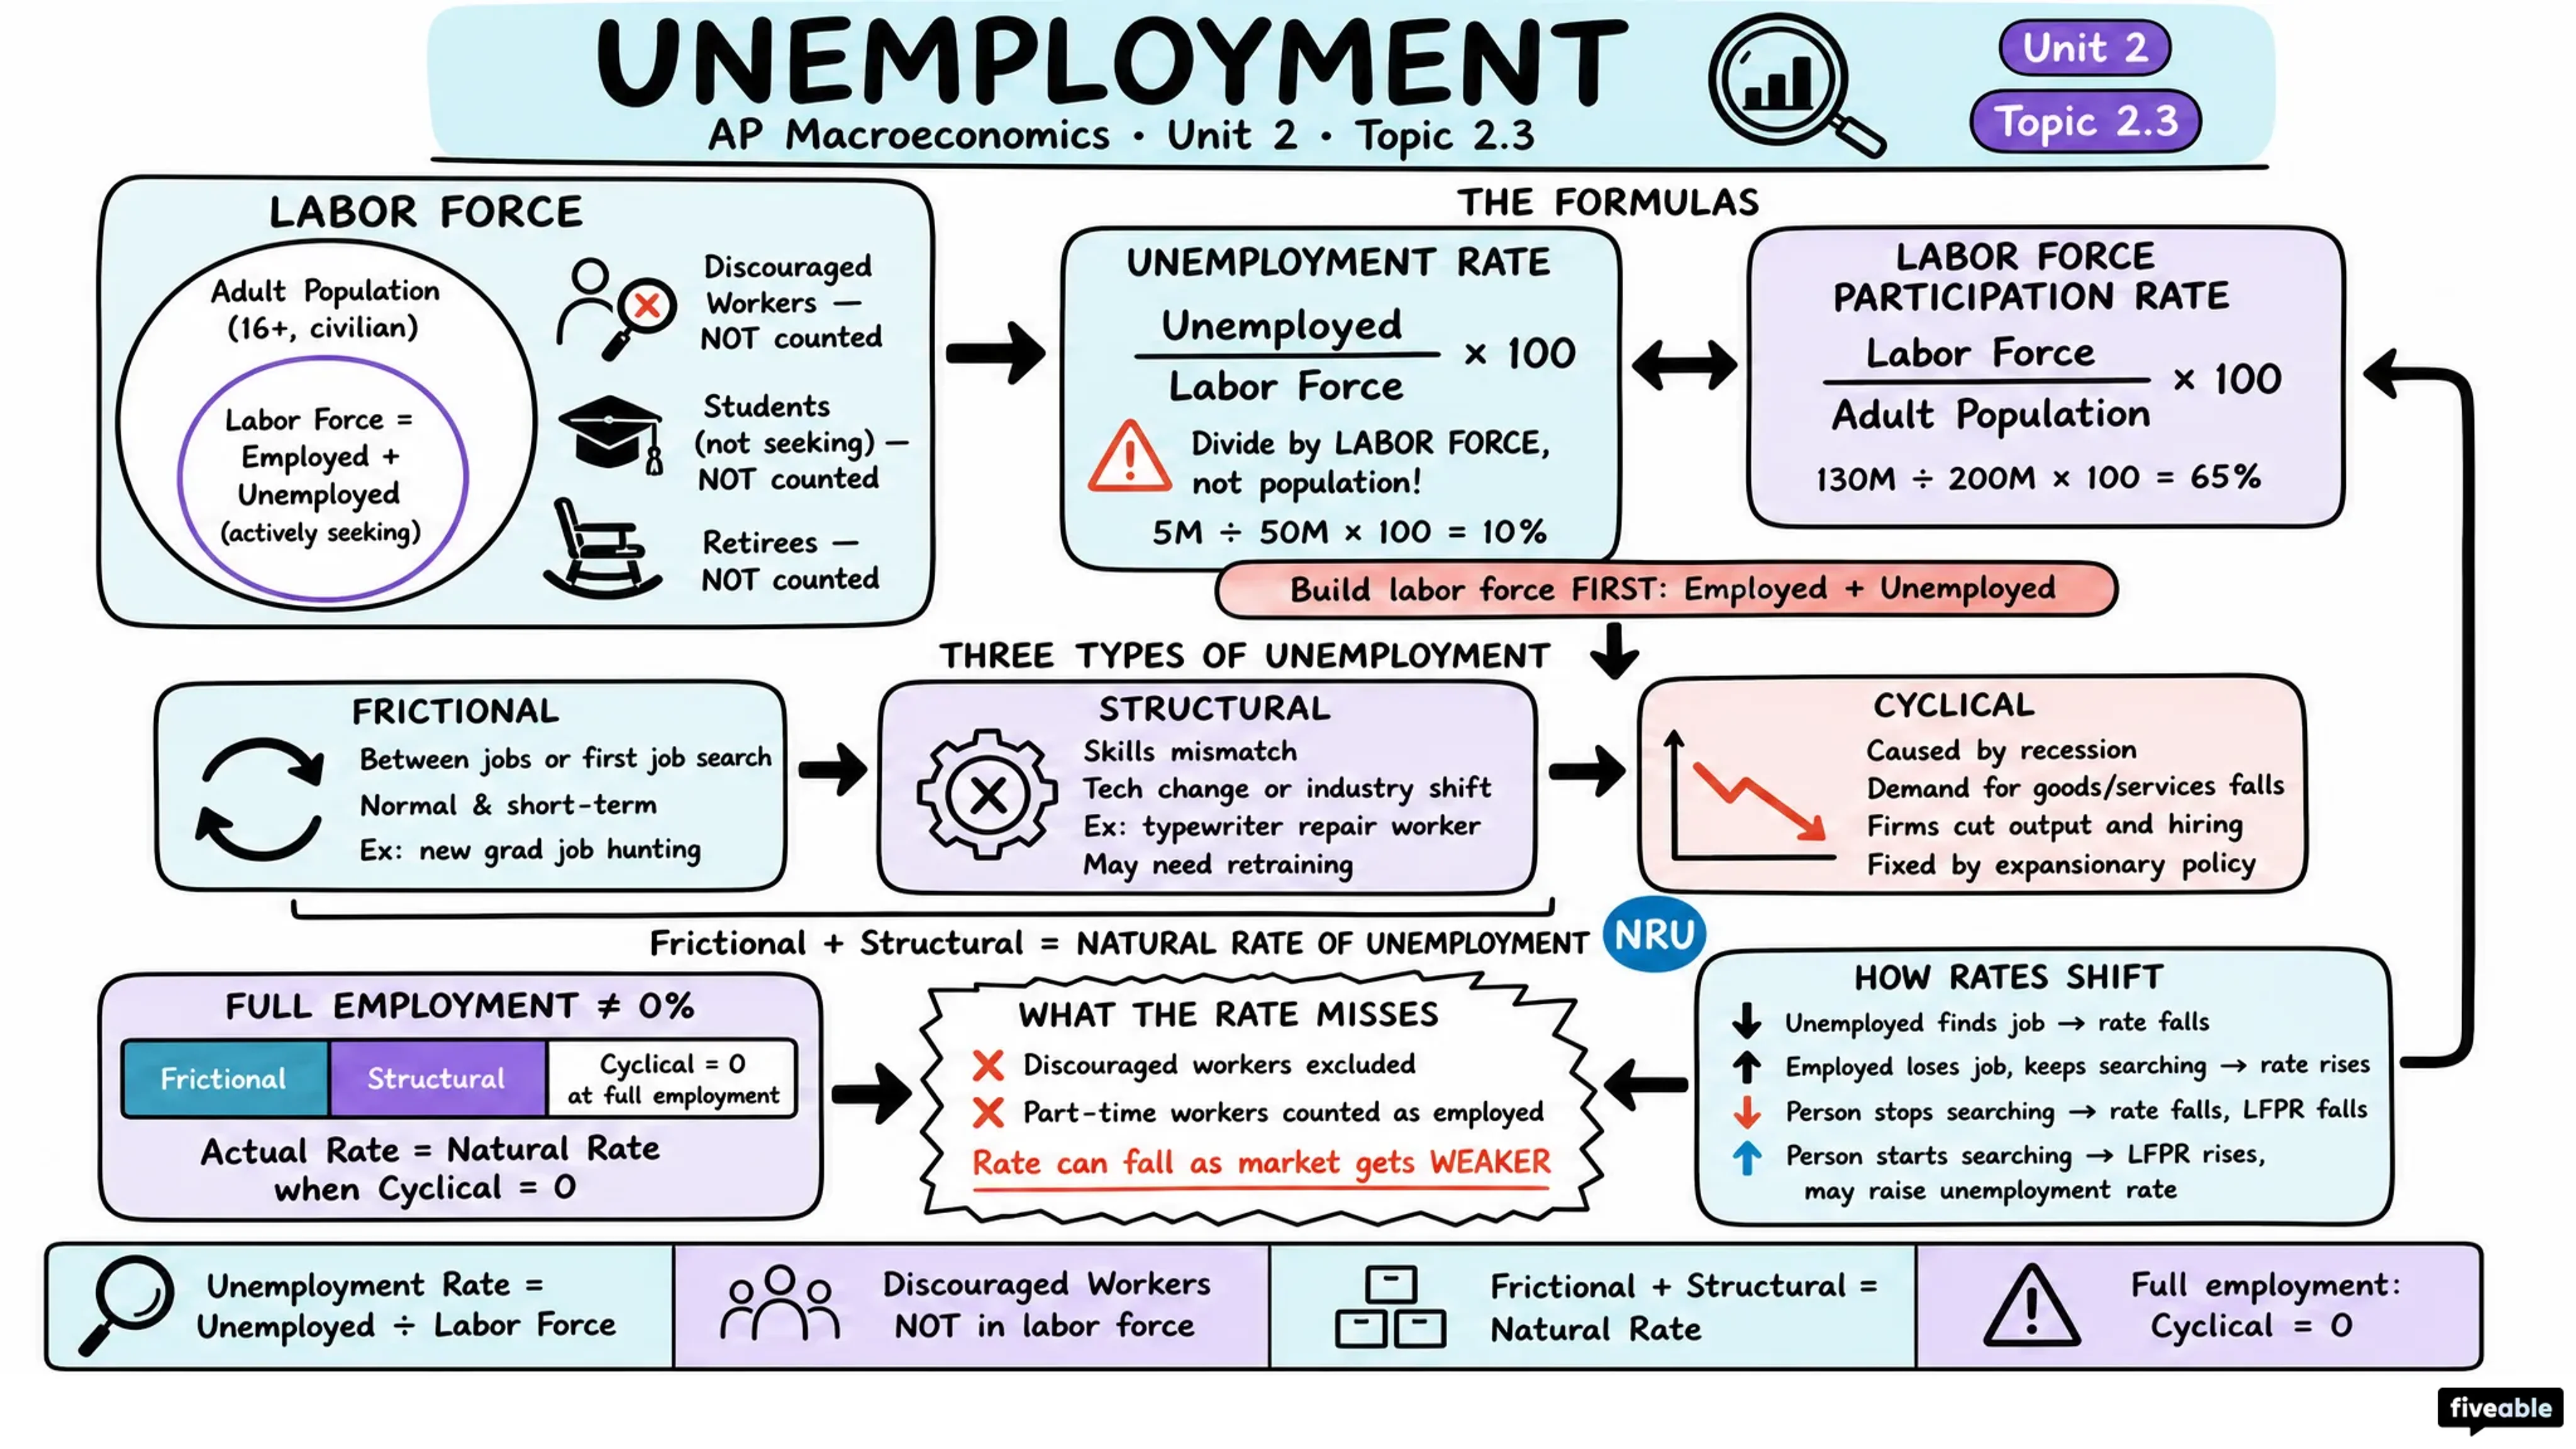 UNEMPLOYMENT
AP Macroeconomics • Unit 2 • Topic 2.3
Unit 2
Topic 2.3
LABOR FORCE
Adult Population
(16+, civilian)
Labor Force =
Employed +
Unemployed
(actively seeking)
Discouraged
Workers —
NOT counted
Students
(not seeking) —
NOT counted
Retirees —
NOT counted
THE FORMULAS
UNEMPLOYMENT RATE
Unemployed
Labor Force
× 100
Divide by LABOR FORCE,
not population!
5M ÷ 50M × 100 = 10%
LABOR FORCE
PARTICIPATION RATE
Labor Force
Adult Population
× 100
130M ÷ 200M × 100 = 65%
Build labor force FIRST: Employed + Unemployed
THREE TYPES OF UNEMPLOYMENT
FRICTIONAL
Between jobs or first job search
Normal & short-term
Ex: new grad job hunting
STRUCTURAL
Skills mismatch
Tech change or industry shift
Ex: typewriter repair worker
May need retraining
CYCLICAL
Caused by recession
Demand for goods/services falls
Firms cut output and hiring
Fixed by expansionary policy
Frictional + Structural = NATURAL RATE OF UNEMPLOYMENT
NRU
FULL EMPLOYMENT ≠ 0%
Frictional
Structural
Cyclical = 0
at full employment
Actual Rate = Natural Rate
when Cyclical = 0
WHAT THE RATE MISSES
Discouraged workers excluded
Part-time workers counted as employed
Rate can fall as market gets WEAKER
HOW RATES SHIFT
Unemployed finds job → rate falls
Employed loses job, keeps searching → rate rises
Person stops searching → rate falls, LFPR falls
Person starts searching → LFPR rises,
may raise unemployment rate
Unemployment Rate =
Unemployed ÷ Labor Force
Discouraged Workers
NOT in labor force
Frictional + Structural =
Natural Rate
Full employment:
Cyclical = 0
fiveable